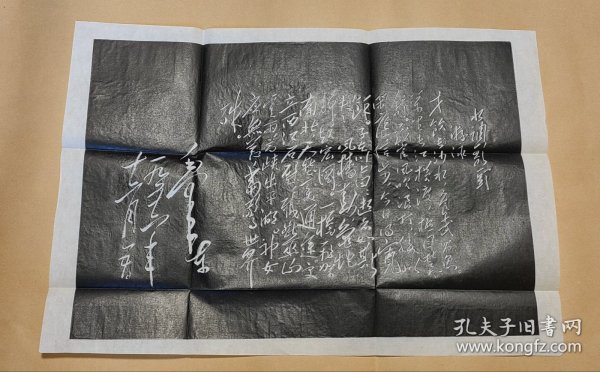 水调歌头
游泳
才饮长沙水又食武昌鱼
万里长江横渡极目楚天
舒不管风吹浪打胜似
闲庭信步今日得宽
馀子在川上曰逝者如斯夫
风樯动龟蛇静
起宏图一桥飞架
南北天堑变通途更立
西江石壁截断巫山
云雨高峡出平湖神女
应无恙当惊世界
殊
毛泽东
一九五六年
十二月五日
孔夫子旧书网
www.kongfz.com